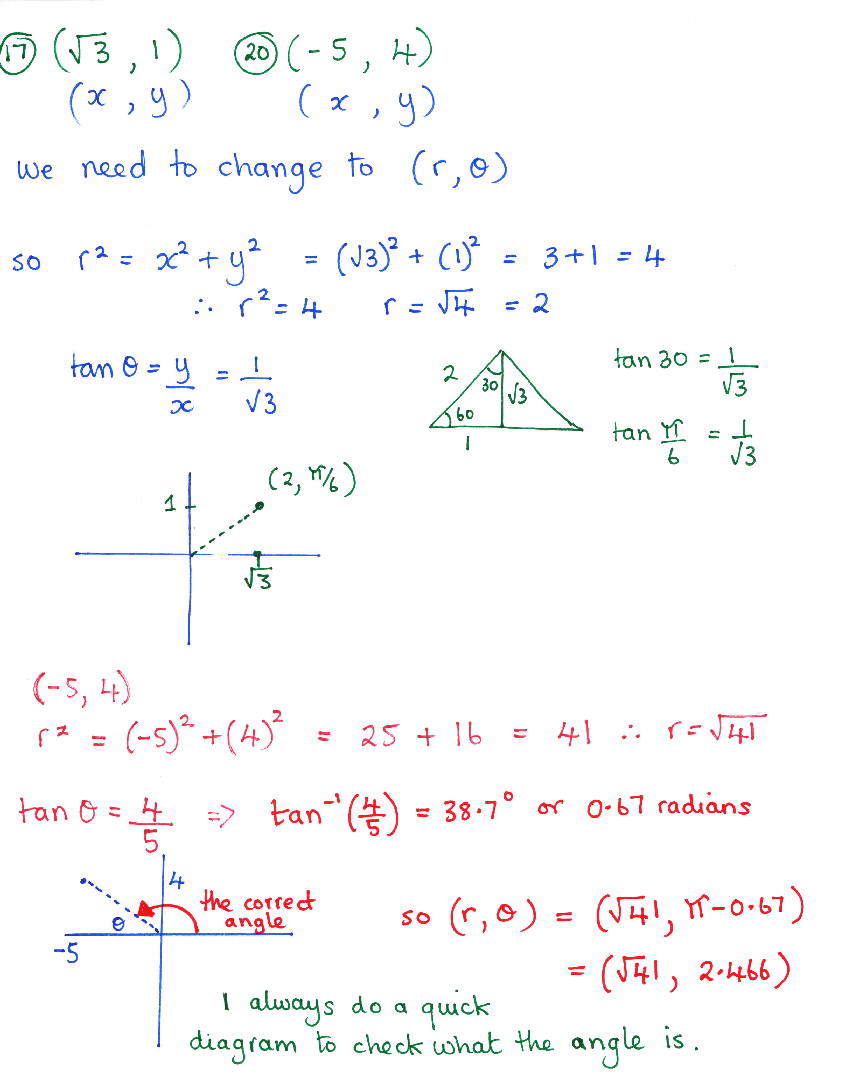 17 (√3, 1) 20 (-5, 4)
(x, y) (x, y)
we need to change to (r, θ)
so r² = x² + y² = (√3)² + (1)² = 3+1 = 4
∴ r² = 4 r = √4 = 2
tan θ = y/x = 1/√3
2 30 √3
60
1
tan 30 = 1/√3
tan π/6 = 1/√3
(2, π/6)
1
√3
(-5, 4)
r² = (-5)² + (4)² = 25 + 16 = 41 ∴ r = √41
tan θ = 4/5 => tan⁻¹(4/5) = 38.7° or 0.67 radians
4
the correct
angle
θ
-5
so (r, θ) = (√41, π-0.67)
= (√41, 2.466)
I always do a quick
diagram to check what the angle is.